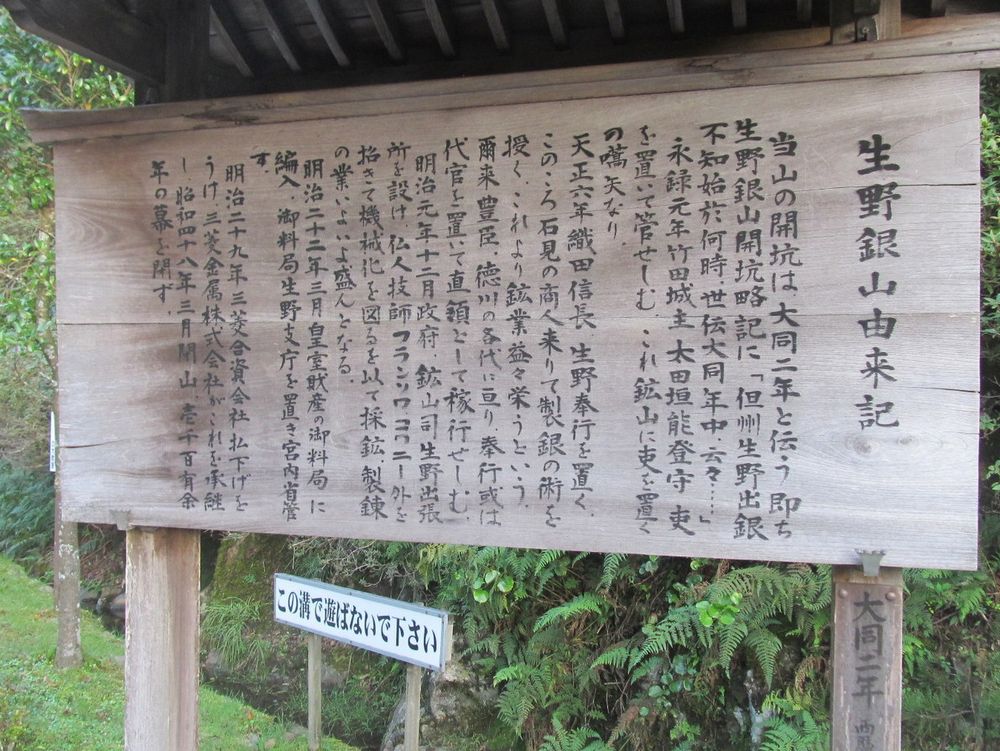 生野銀山由来記
当山の開坑は大同二年と伝う即ち
生野銀山開坑略記に「但州生野出銀
不知始於何時、世伝大同年中、云々……」
永録元年竹田城主 太田垣能登守 吏
を置いて管せしむ これ鉱山に吏を置く
の嚆矢なり
天正六年織田信長、生野奉行を置く、
このころ石見の商人来りて製銀の術を
授く、これより鉱業益々栄うという、
爾来豊臣、徳川の各代に亘り奉行或は
代官を置いて直領として稼行せしむ、
明治元年十二月政府、鉱山司生野出張
所を設け、仏人技師フランソワコワニー外を
招きて機械化を図るを以て採鉱製錬
の業いよいよ盛んとなる
明治二十二年三月皇室財産の御料局に
編入 御料局生野支庁を置き宮内省管
す、
明治二十九年三菱合資会社払下げを
うけ 三菱金属株式会社がこれを承継
し、昭和四十八年三月閉山 壱千百有余
年の幕を閉ず、
この溝で遊ばないで下さい
大同二年